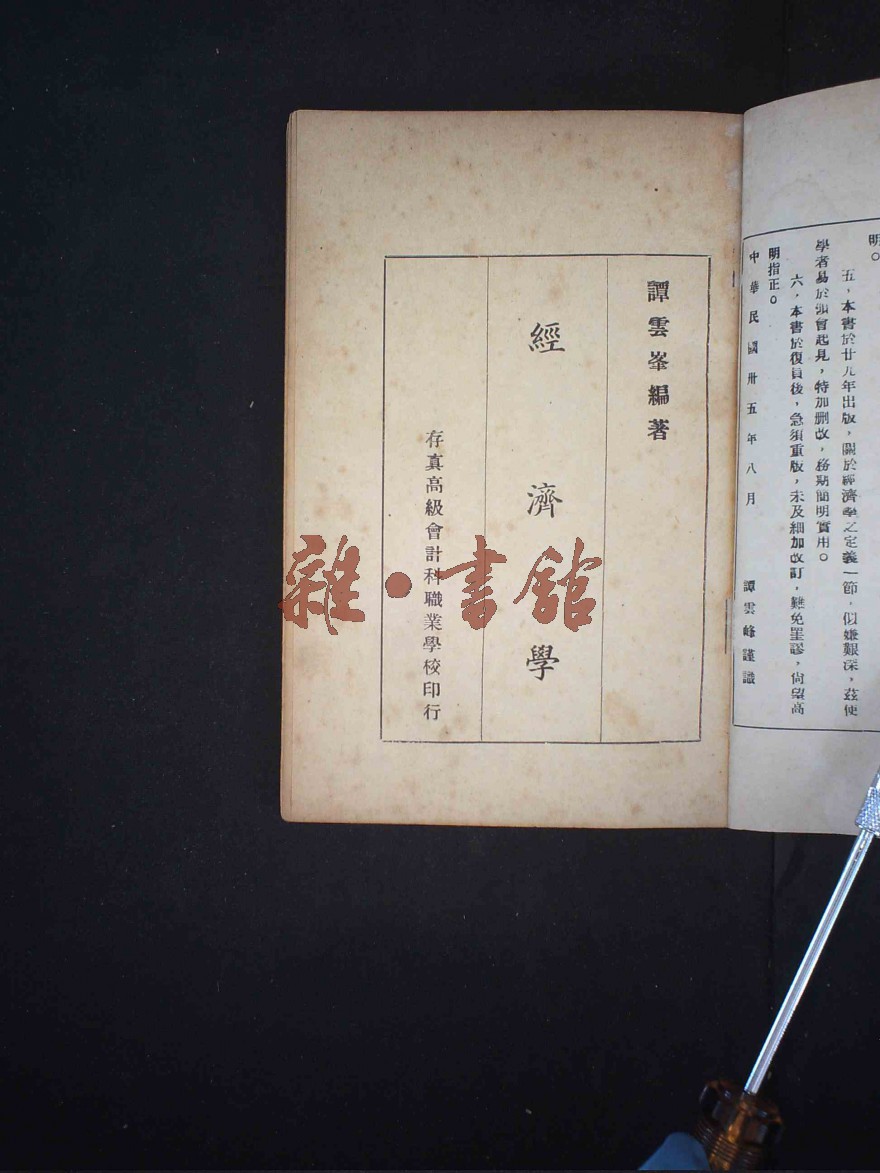 明。
五，本書於廿九年出版，關於經濟學之定義一節，似嫌艱深，茲使
學者易於領會起見，特加刪改，務期簡明實用。
六，本書於復員後，急須重版，未及細加改訂，難免罣謬，尙望高
明指正。
中華民國卅五年八月 譚雲峰謹識
譚雲峯編著
經濟學
存真高級會計科職業學校印行
雜·書館